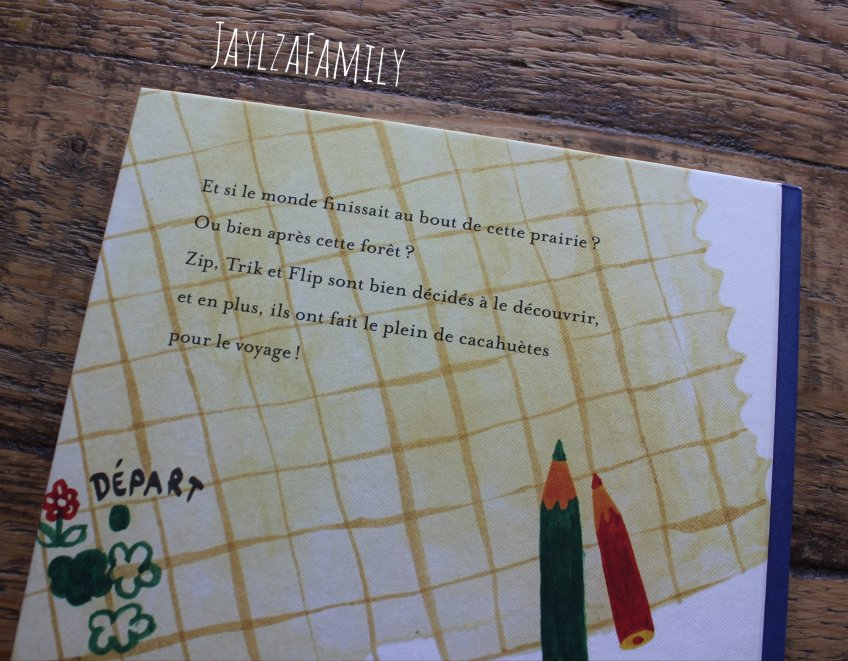 JAYLZAFAMILY
Et si le monde finissait au bout de cette prairie ?
Ou bien après cette forêt ?
Zip, Trik et Flip sont bien décidés à le découvrir,
et en plus, ils ont fait le plein de cacahuètes
pour le voyage !
DÉPART